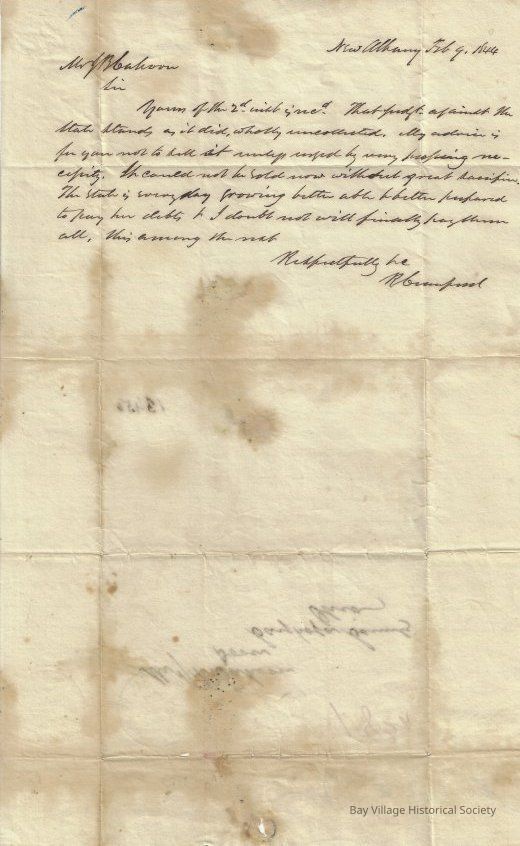 New Albany Feb 9. 1844
Mr J B Cahoon
Sir
Yours of the 2d inst is rec'd. That judgt. against the
State stands as it did, wholly uncollected. My advice is
for you not to sell it unless urged by very pressing ne-
cessity. It could not be sold now without great sacrifice.
The State is every day growing better able & better prepared
to pay her debts & I doubt not will finally pay them
all, this among the rest
Respectfully &c
R Crawford
Bay Village Historical Society